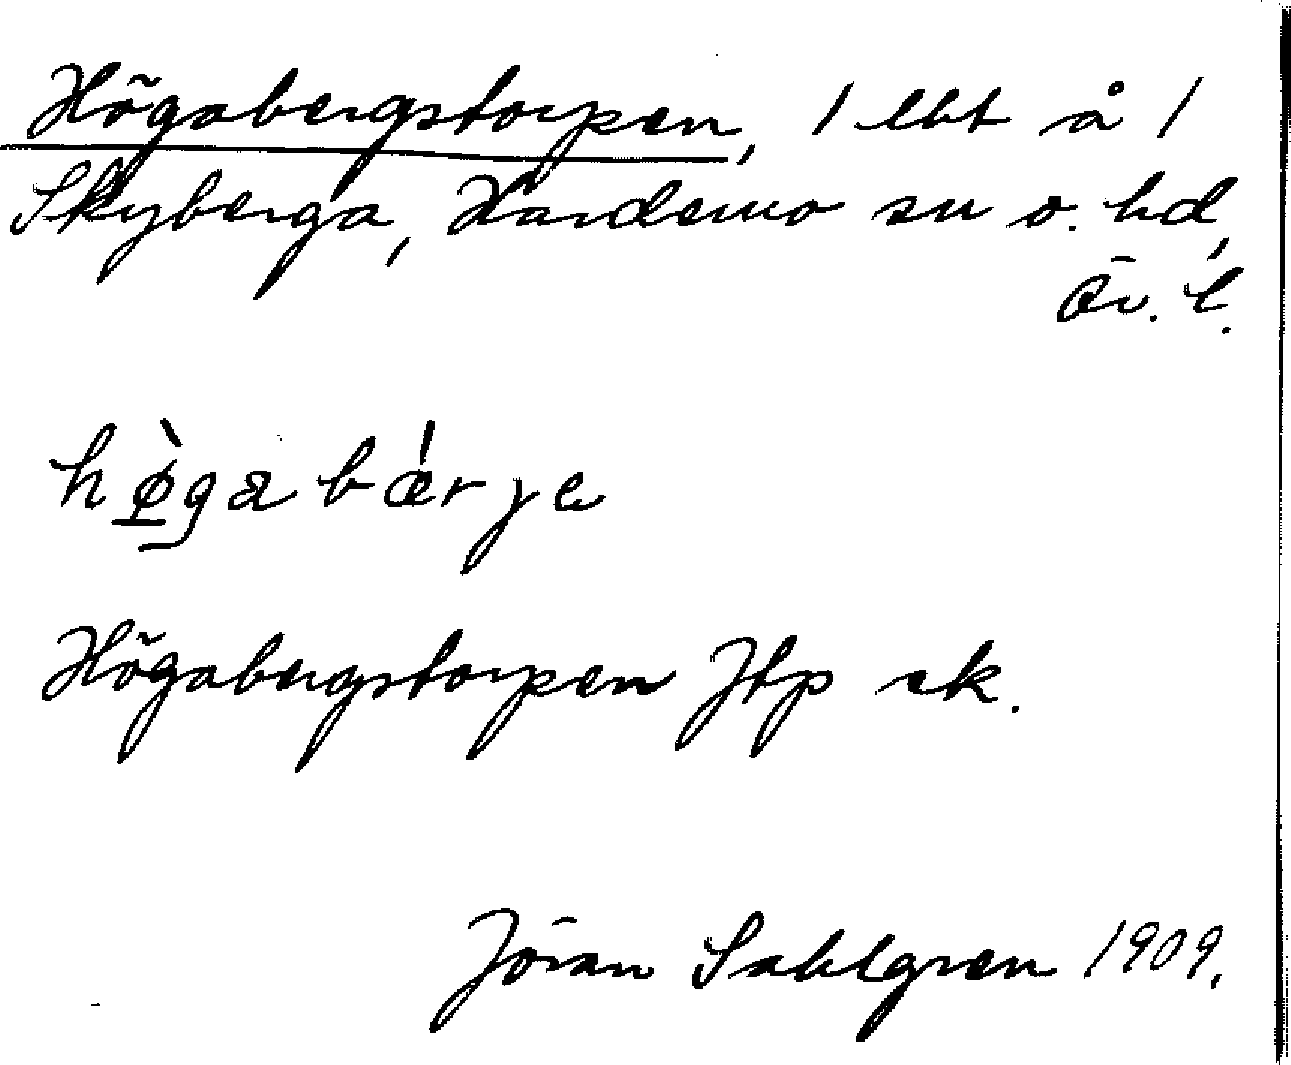 Högabergstorpen, 1 lht å 1
Skyberga, Hardemo sn o. hd,
Ör. l.
hø̀ga bǽrje
Högabergstorpen Jtp ek.
Jöran Sahlgren 1909.